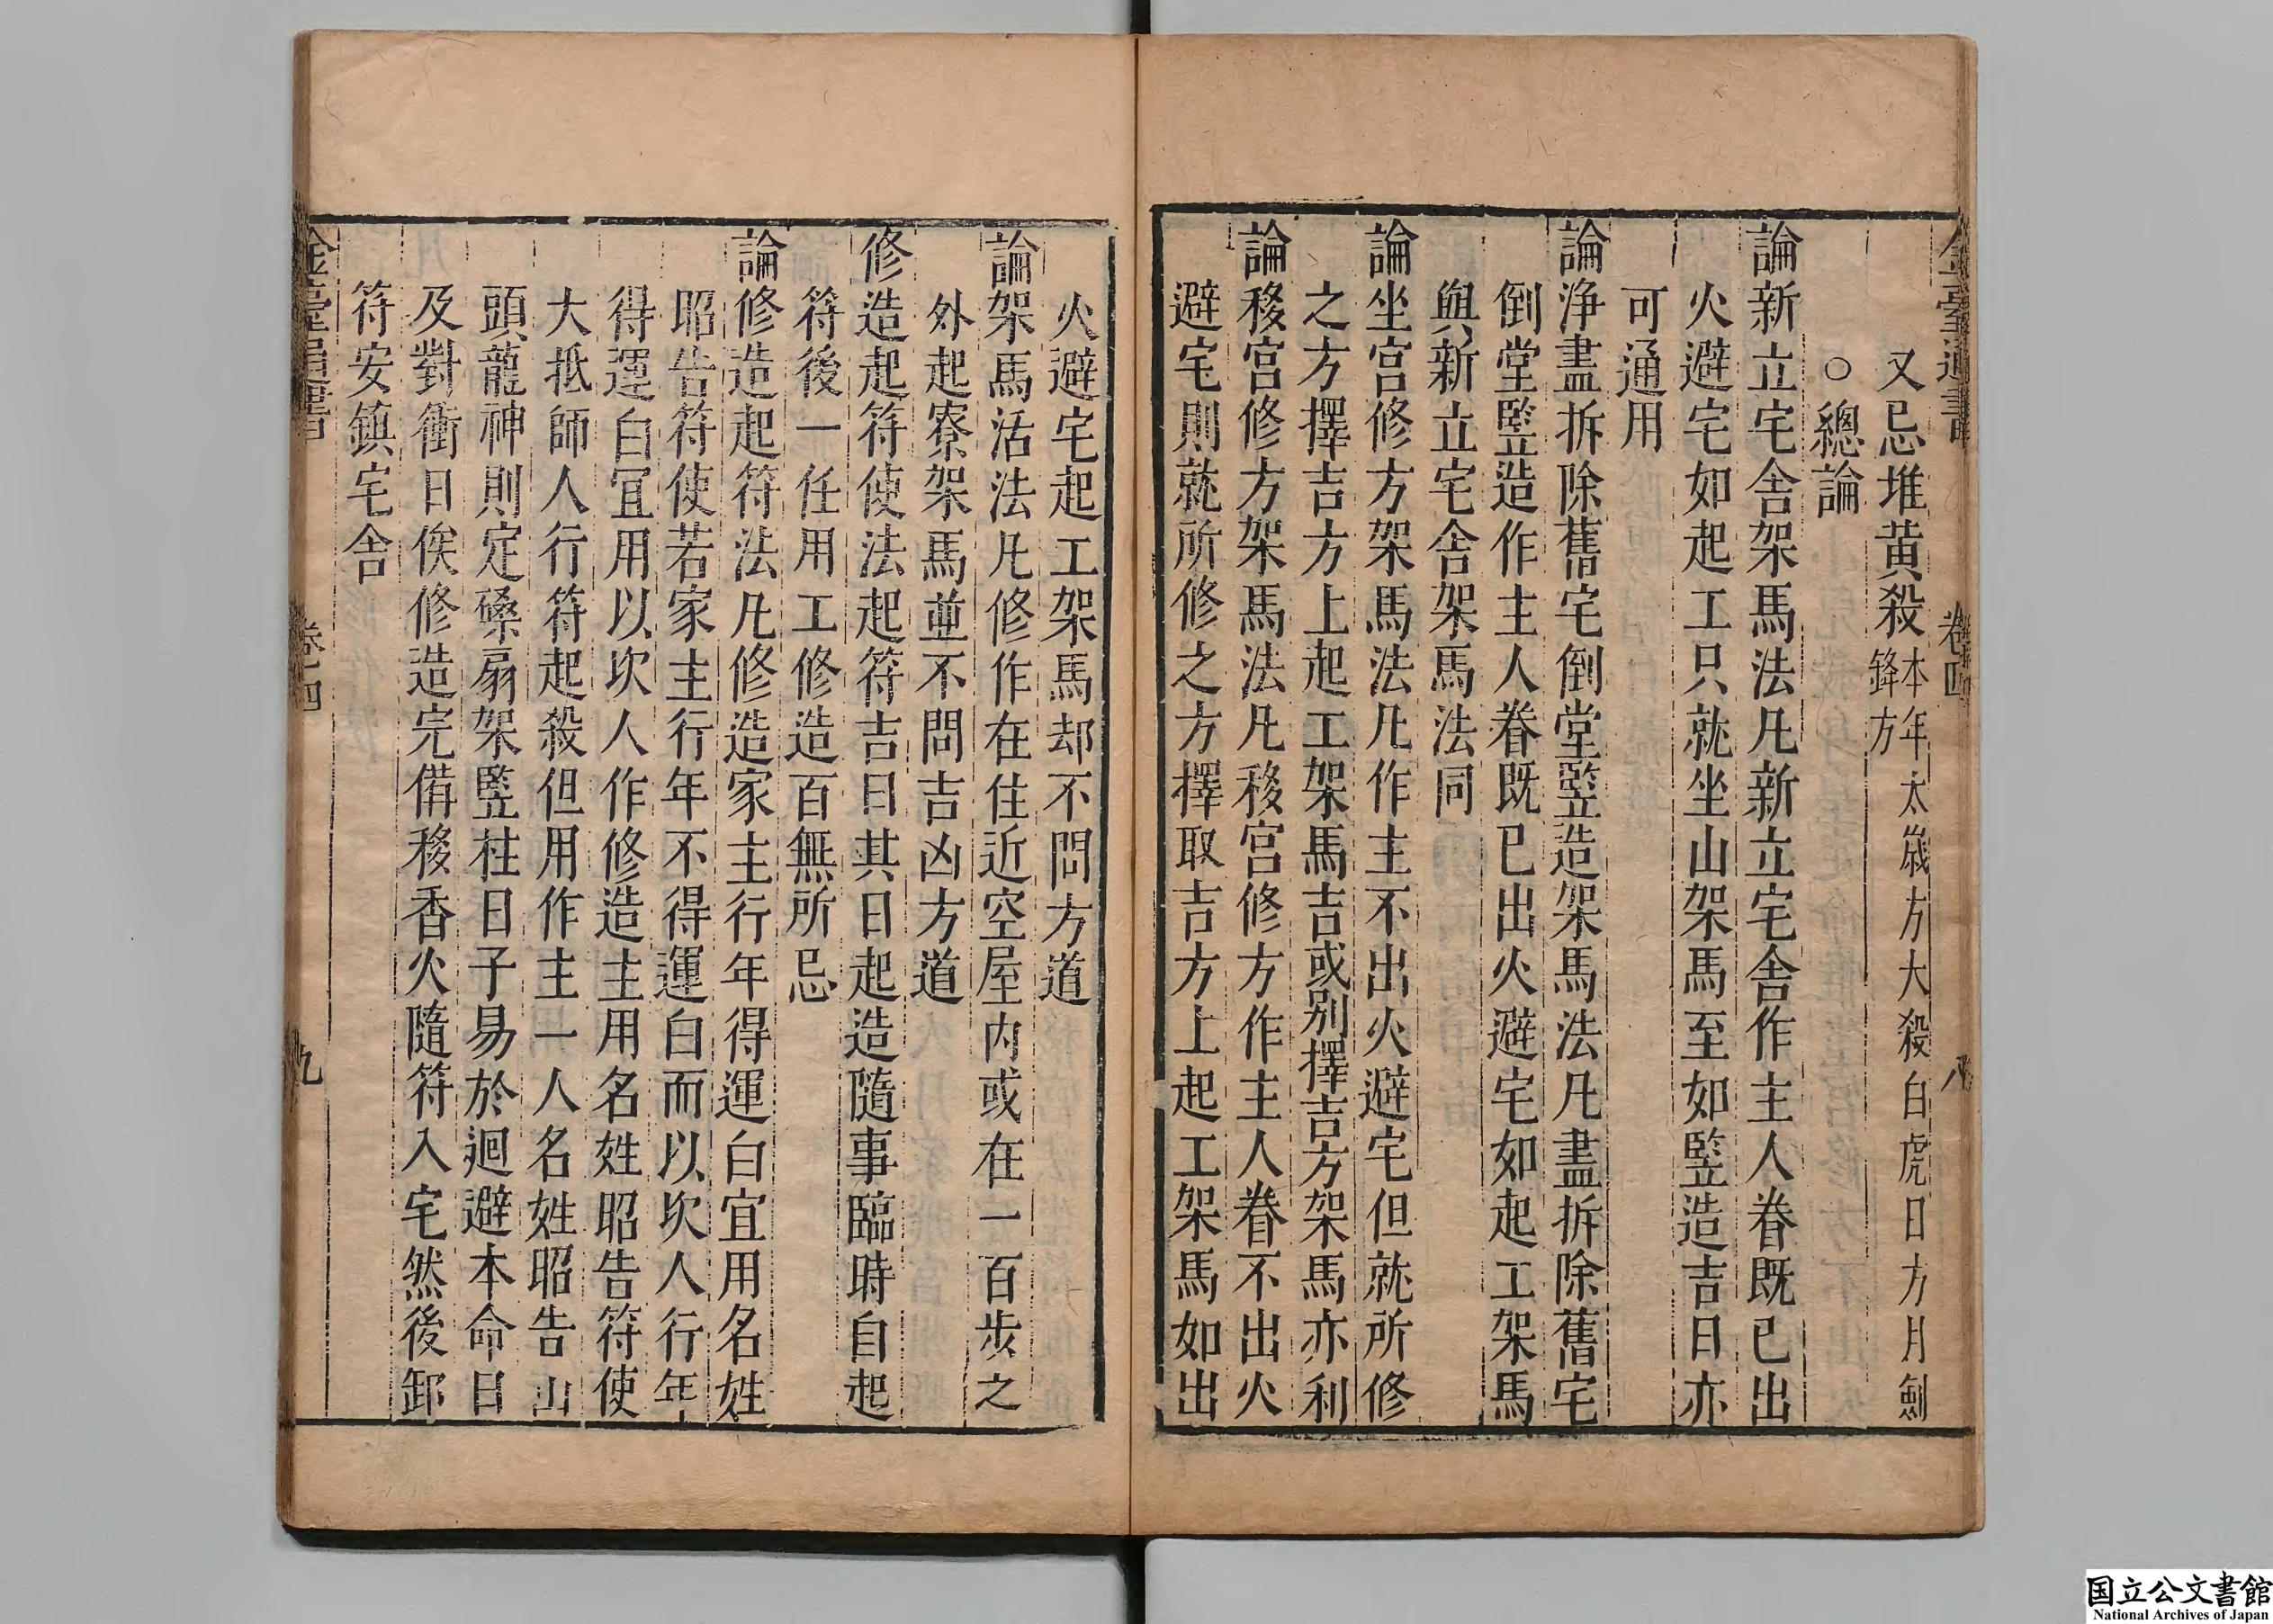 又忌堆黄殺本年太歲方大殺白虎日方月劍鋒方
○總論
論新立宅舍架馬法凡新立宅舍作主人眷既已出
火避宅如起工只就坐山架馬至如竪造吉日亦
可通用
論浄盡拆除舊宅倒堂竪造架馬法凡盡拆除舊宅
倒堂竪造作主人眷既已出火避宅如起工架馬
與新立宅舍架馬法同
論坐宫修方架馬法凡作主不出火避宅但就所修
之方擇吉方上起工架馬吉或别擇吉方架馬亦利
論移宫修方架馬法凡移宫修方作主人眷不出火
避宅則就所修之方擇取吉方上起工架馬如出
火避宅起工架馬却不問方道
論架馬活法凡修作在住近空屋内或在一百步之
外起寮架馬並不問吉凶方道
修造起符使法起符吉日其日起造隨事臨時自起
符後一任用工修造百無所忌
論修造起符法凡修造家主行年得運白宜用名姓
昭告符使若家主行年不得運白而以次人行年
得運白宜用以次人作修造主用名姓昭告符使
大抵師人行符起殺但用作主一人名姓昭告山
頭龍神則定磉扇架竪柱日子易於迴避本命日
及對衝日俟修造完備移香火隨符入宅然後卸
符安鎮宅舍
卷四
八
九
国立公文書館
National Archives of Japan